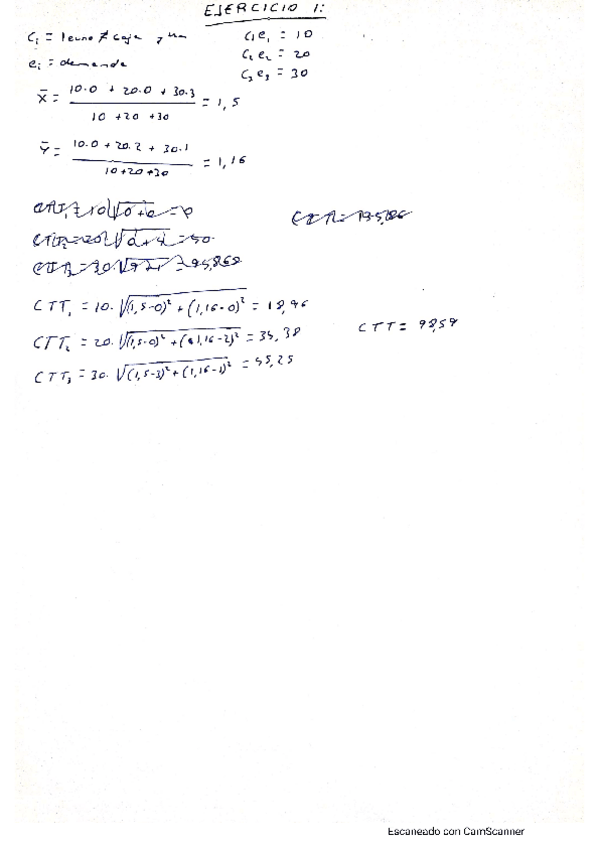 EJERCICIO 1:
Ci = € caja y km
ei = demanda
C1e1 = 10
C2e2 = 20
C3e3 = 30
X̄ = (10·0 + 20·0 + 30·3) / (10 + 20 + 30) = 1,5
Ȳ = (10·0 + 20·2 + 30·1) / (10+20+30) = 1,16
CTT1 = 10·√((1,5-0)² + (1,16-0)²) = 18,96
CTT2 = 20·√((1,5-0)² + (1,16-2)²) = 34,38
CTT3 = 30·√((1,5-3)² + (1,16-1)²) = 45,25
CTT = 98,59
Escaneado con CamScanner